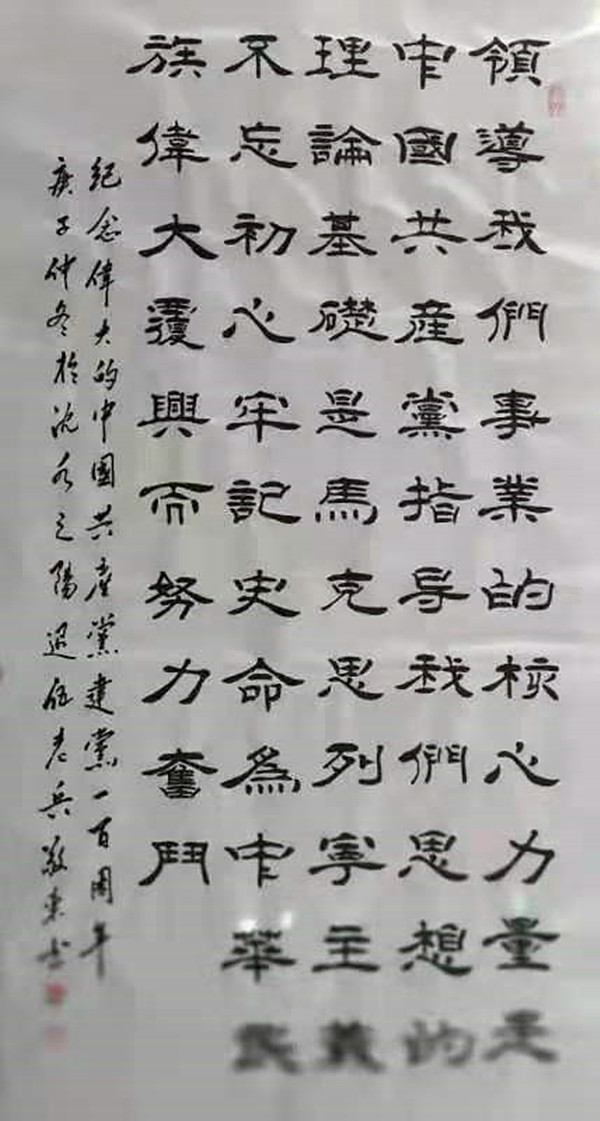 領導我們事業的核心力量是
中國共産黨指导我們思想的
理論基礎是馬克思列寧主義
不忘初心牢記史命爲中華民
族偉大覆興而努力奮鬥
紀念偉大的中國共産黨建黨一百周年
庚子仲冬於沈水之陽退伍老兵敬東书